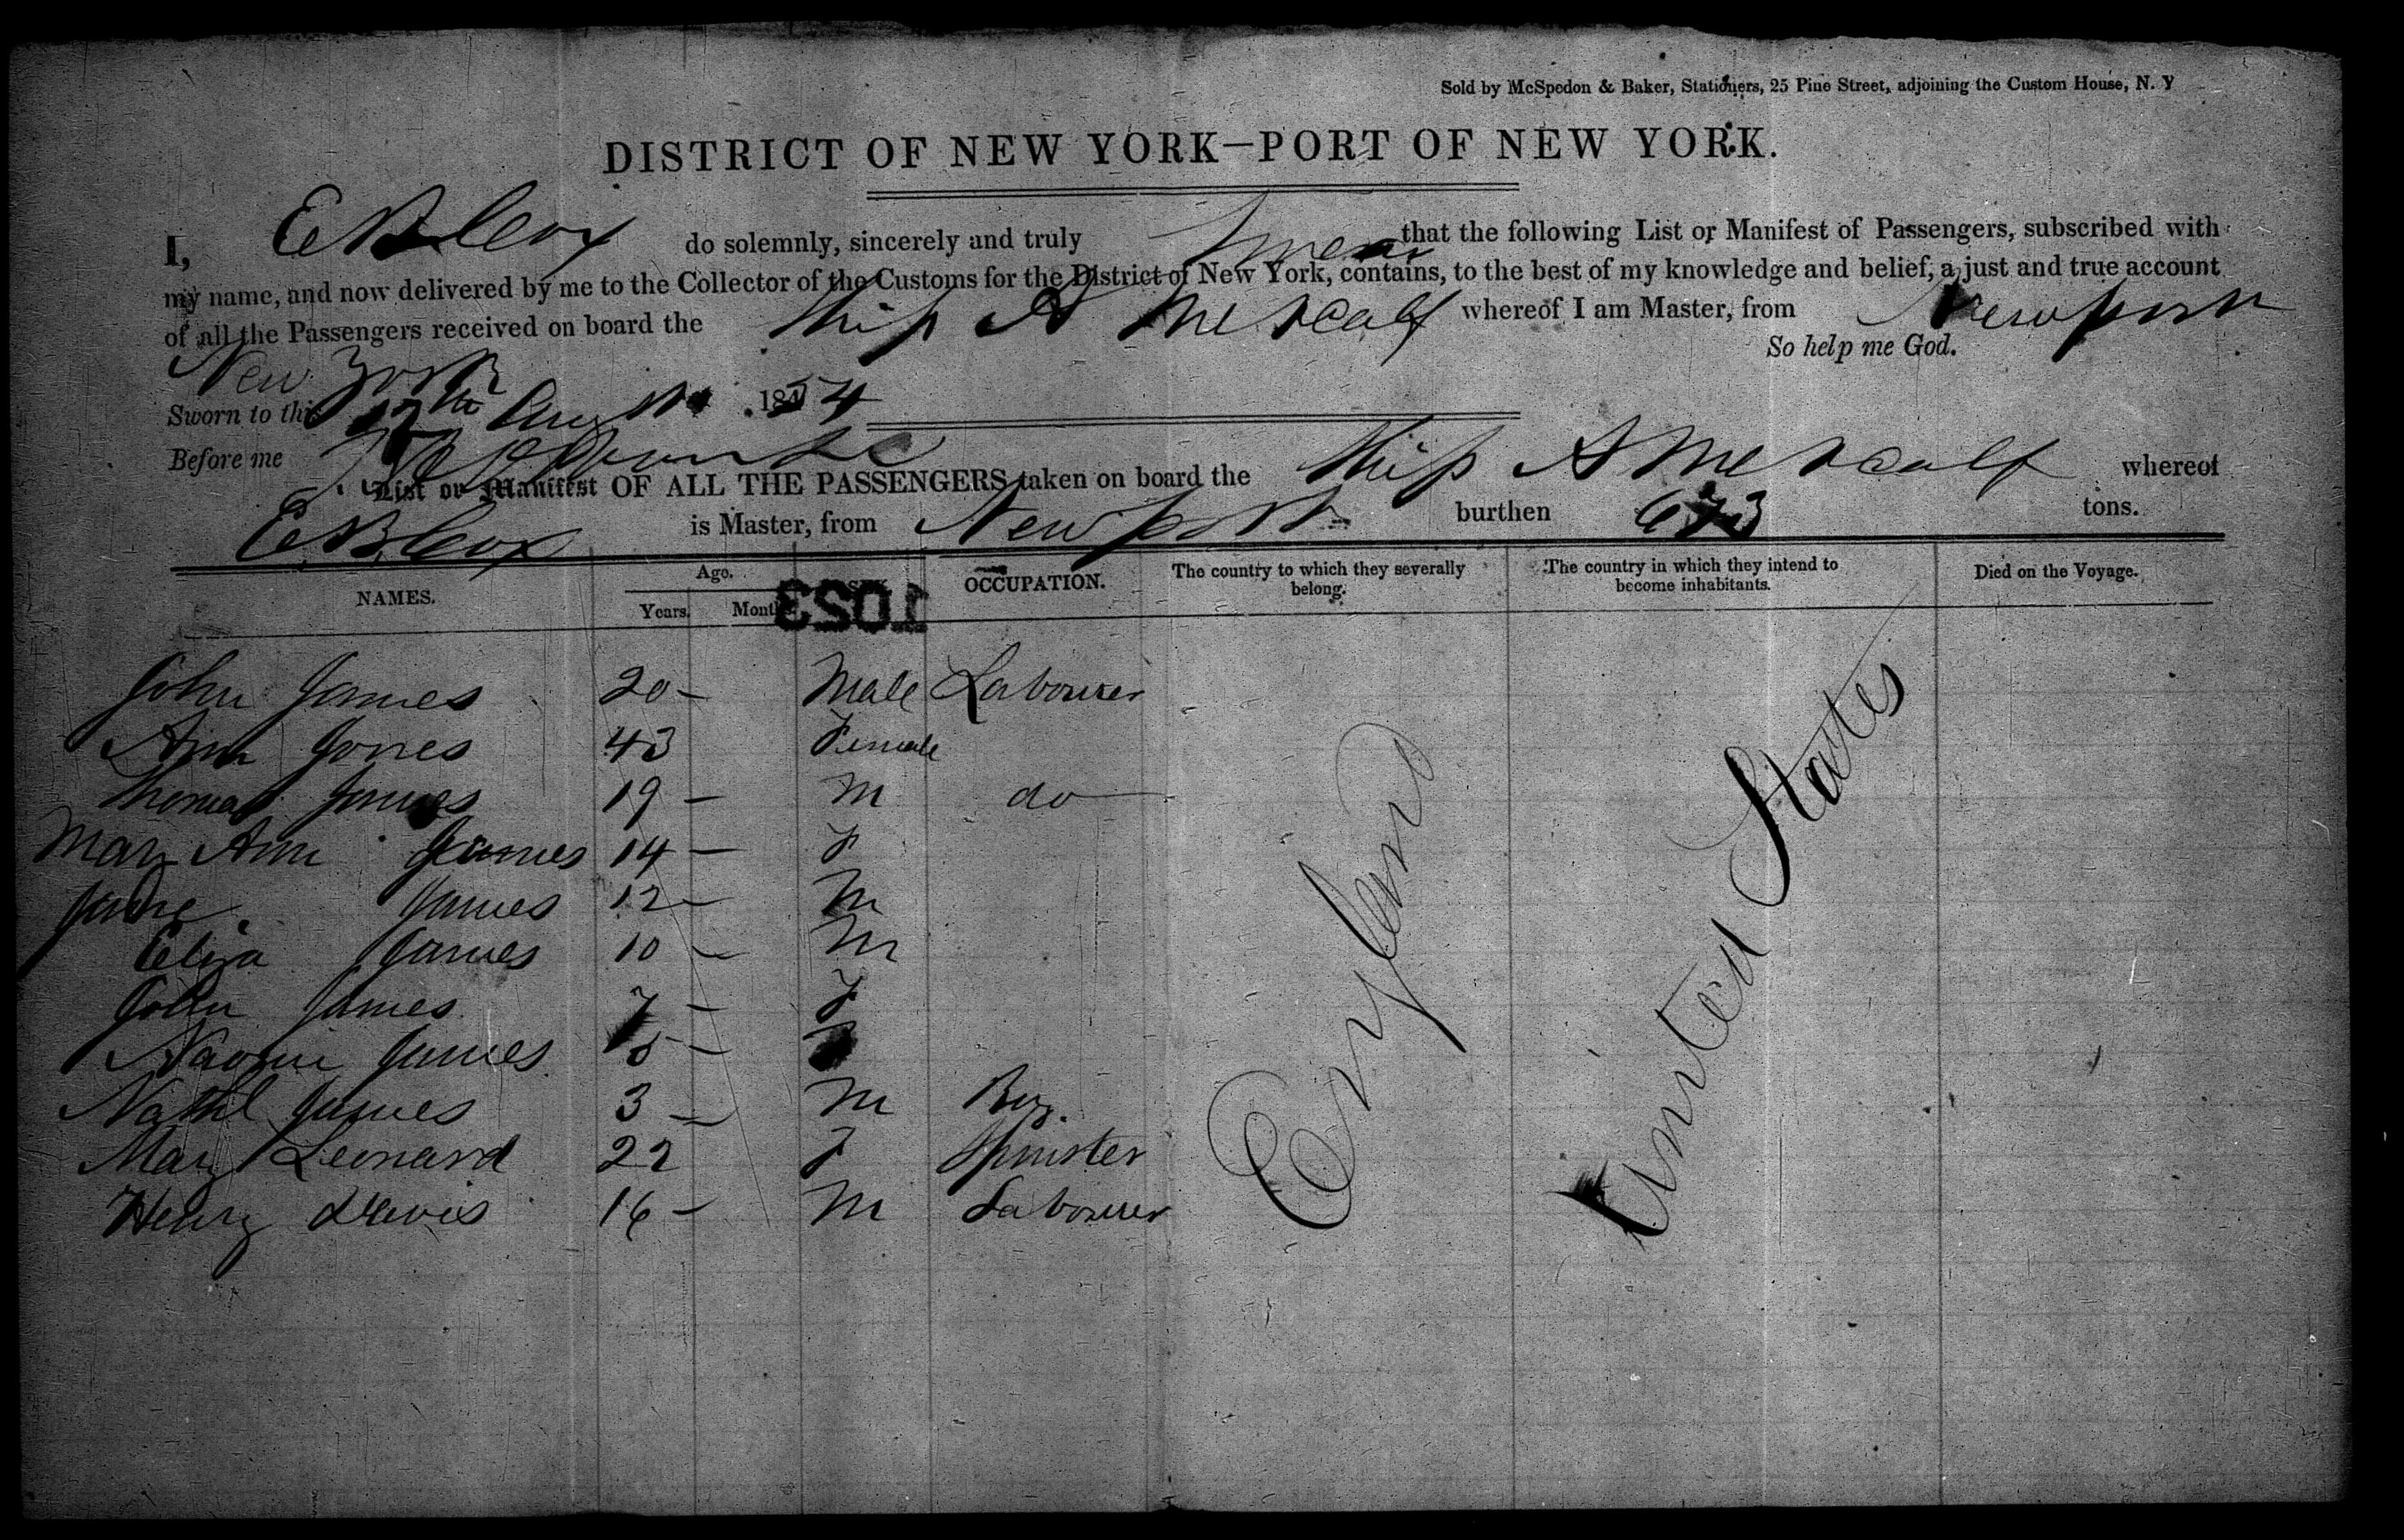 Sold by McSpedon & Baker, Stationers, 25 Pine Street, adjoining the Custom House, N. Y
DISTRICT OF NEW YORK—PORT OF NEW YORK.
I, E B Cox do solemnly, sincerely and truly Swear that the following List or Manifest of Passengers, subscribed with
my name, and now delivered by me to the Collector of the Customs for the District of New York, contains, to the best of my knowledge and belief, a just and true account
of all the Passengers received on board the Ship A Metcalf whereof I am Master, from Newport
New York So help me God.
Sworn to this 17th August 1854
Before me
List or Manifest OF ALL THE PASSENGERS taken on board the Ship A Metcalf whereof
E B Cox is Master, from Newport burthen 673 tons.
NAMES. Age. Years. Months. OCCUPATION. The country to which they severally belong. The country in which they intend to become inhabitants. Died on the Voyage.
1053
John James 20 - Male Labourer
Ann Jones 43 Female
Thomas James 19 - M do
Mary Ann James 14 - F
Jane James 12 - M
Eliza James 10 - M
John James 7 - F
Naomi James 5 -
Nathl James 3 - M Boy.
Mary Leonard 22 F Spinster
Henry Davis 16 - M Labourer
England
United States